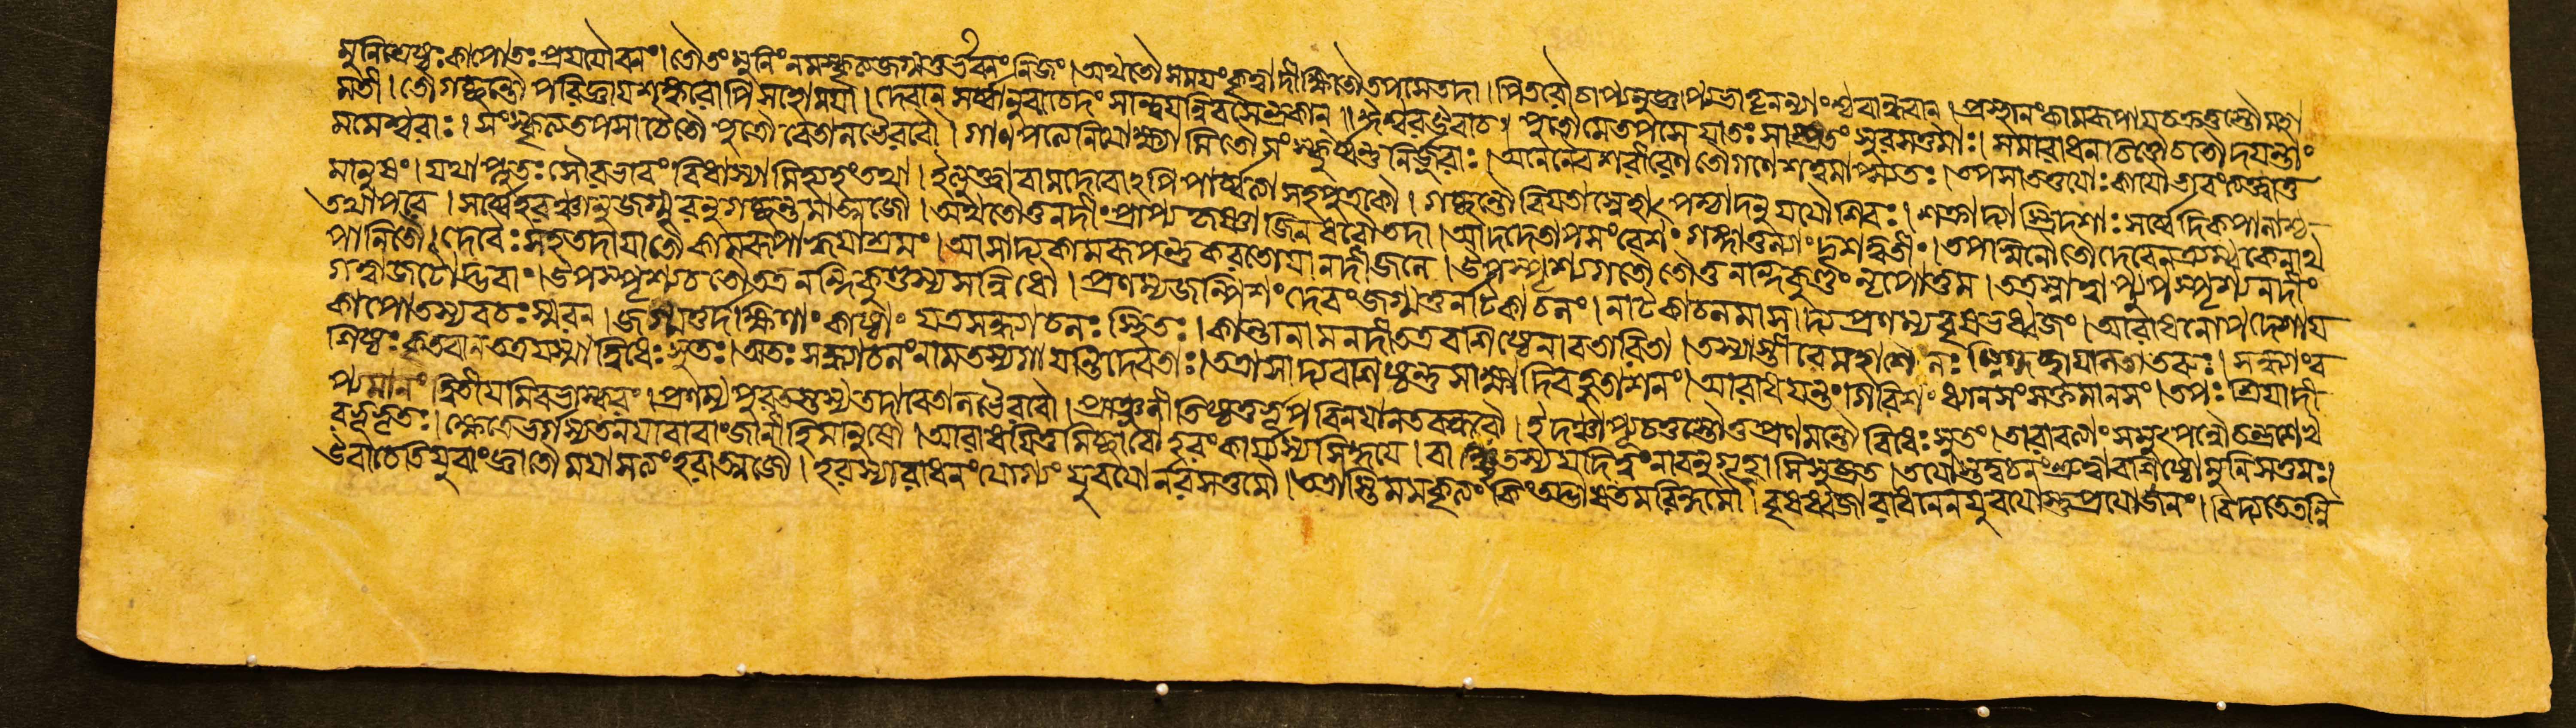 মুনিশ্রেষ্ঠঃ কাপোতঃ প্রযযৌ বনং। তৌ তং মুনিং নমস্কৃত্য জগ্মতুর্ভবনং নিজং। অথ তৌ সময়ং কৃত্বা দীক্ষিতৌ তপসে তদা। পিতরৌ চাপ্যনুজ্ঞাপ্য ভ্রাতৄনন্যাংশ্চ বান্ধবান। প্রস্থানং কামরূপায় চক্রতুস্তৌ মহা
মতী। তৌ গচ্ছন্তৌ পরিজ্ঞায় শঙ্করোপি সহোময়া। দেবান সর্ব্বানুবাচেদং সান্ত্বয়ন্নিব সেন্দ্রকান॥ ঈশ্বর উবাচ॥ পুত্রৌ মে তপসে যাতঃ সাম্প্রতং সুরসত্তমাঃ। সমারাধনচিত্তৌ চ তৌ দয়ন্তাং
মমেশ্বরাঃ। সংস্কৃত্য তপসা চৈতৌ পুত্রৌ বেতালভৈরবৌ। গাণপত্যে নিযোক্ষ্যামি তৌ সংস্কুর্ব্বন্তু নির্জরাঃ। অনেনৈব শরীরেণ তৌ গণেশত্বমাপ্স্যতঃ। তপসা তু তয়োঃ কায়ৌ ভাবং ত্যক্ত্বা তু
মানুষং। যথাপ্নুতঃ সৌরভাবং বিধাস্যামি হ্যহং তথা। ইত্যুক্ত্বা বামদেবোঽপি পার্ব্বত্যা সহ পুত্রকৌ। গচ্ছন্তৌ বিয়তা স্নেহাৎ পশ্চাদনুযযৌ শিবঃ। শক্রাদ্যাস্ত্রিদশাঃ সর্ব্বে দিকপালাশ্চ
তথাপরে। সর্ব্বে হরঞ্চানুজগ্মুরনুগচ্ছন্তমাত্মজৌ। অথ তৌ তু নদীং প্রাপ্য কৃষ্ণাজিনধরৌ তদা। আদদে তাপসং বেশং গঙ্গাতুল্যাং দৃশদ্বতীং। তপস্বিনৌ তৌ দেবেন ত্র্যম্বকেনাথ
পালিতৌ। দেবৈঃ সহ তদা যাতৌ কামরূপাহ্বয়াশ্রমং। আসাদ্য কামরূপন্তু করতোয়ানদীজলে। উপস্পৃশ্য গতৌ তৌ তু নন্দিকুণ্ডং নৃপোত্তম। তত্র স্নাত্বাপ্যুপস্পৃশ্য নদীং
গত্বা জটোদ্ভবাং। উপস্পৃশ্য চ তৌ তত্র নন্দিকুণ্ডস্য সন্নিধৌ। প্রণম্য জল্পীশং দেবং জগ্মতুর্নাটকাচলং। নাটকাচলমাসাদ্য প্রণম্য বৃষভধ্বজং। আরাধনোপদেশায়
কাপোতস্য বচঃ স্মরন। জগ্মতুর্দক্ষিণাং কাষ্ঠাং যত্র সন্ধ্যাচলঃ স্থিতঃ। কান্তা নাম নদী তত্র বশিষ্ঠেনাবতারিতা। তস্যাস্তীরে মহাশৈলঃ স্নিগ্ধচ্ছায়ালতাতরুঃ। সন্ধ্যাং ব
শিষ্ঠঃ কৃতবান তত্র যস্মাদ্বিধেঃ সুতঃ। অতঃ সন্ধ্যাচলং নাম তস্য গায়ন্তি দেবতাঃ। তত্রাসাদ্য বশিষ্ঠন্তু সাক্ষাদিব হুতাশনং। আরাধয়ন্তং গিরিশং ধ্যানসংসক্তমানসং। তপঃশ্রিয়া দী
প্যমানং দ্বিতীয়মিব ভাস্করং। প্রণম্য পুরতস্তস্য তদা বেতালভৈরবৌ। প্রাঞ্জলী তিষ্ঠতুর্ভূপ বিনয়ানতকন্ধরৌ। ইদঞ্চাপ্যূচতুস্তৌ তু প্রণমন্তৌ বিধেঃ সুতং। তারাবত্যাং সমুৎপন্নৌ চন্দ্রশেখ
রভূভৃতঃ। ক্ষেত্রে ভর্গস্য তনয়াবাবাং জানীহি মানুষৌ। আরাধয়িতুমিচ্ছাবো হরং কার্য্যস্য সিদ্ধয়ে। বাঞ্ছিতস্য যদি ত্বং নাবনুগৃহ্ণাসি সুব্রত। তয়োস্তদ্বচনং শ্রুত্বা বশিষ্ঠো মুনিসত্তমঃ।
উবাচেতি যুবাং জ্ঞাতৌ ময়া সত্যং হরাত্মজৌ। হরস্যারাধনং যোগ্যং যুবয়োর্নরসত্তমৌ। অত্রাস্তি মম কৃত্যং কিং তদ্ভাষতমরিন্দমৌ। বৃষধ্বজারাধনেন যুবয়োস্তু প্রয়োজনং। বিদ্যতে তন্নি